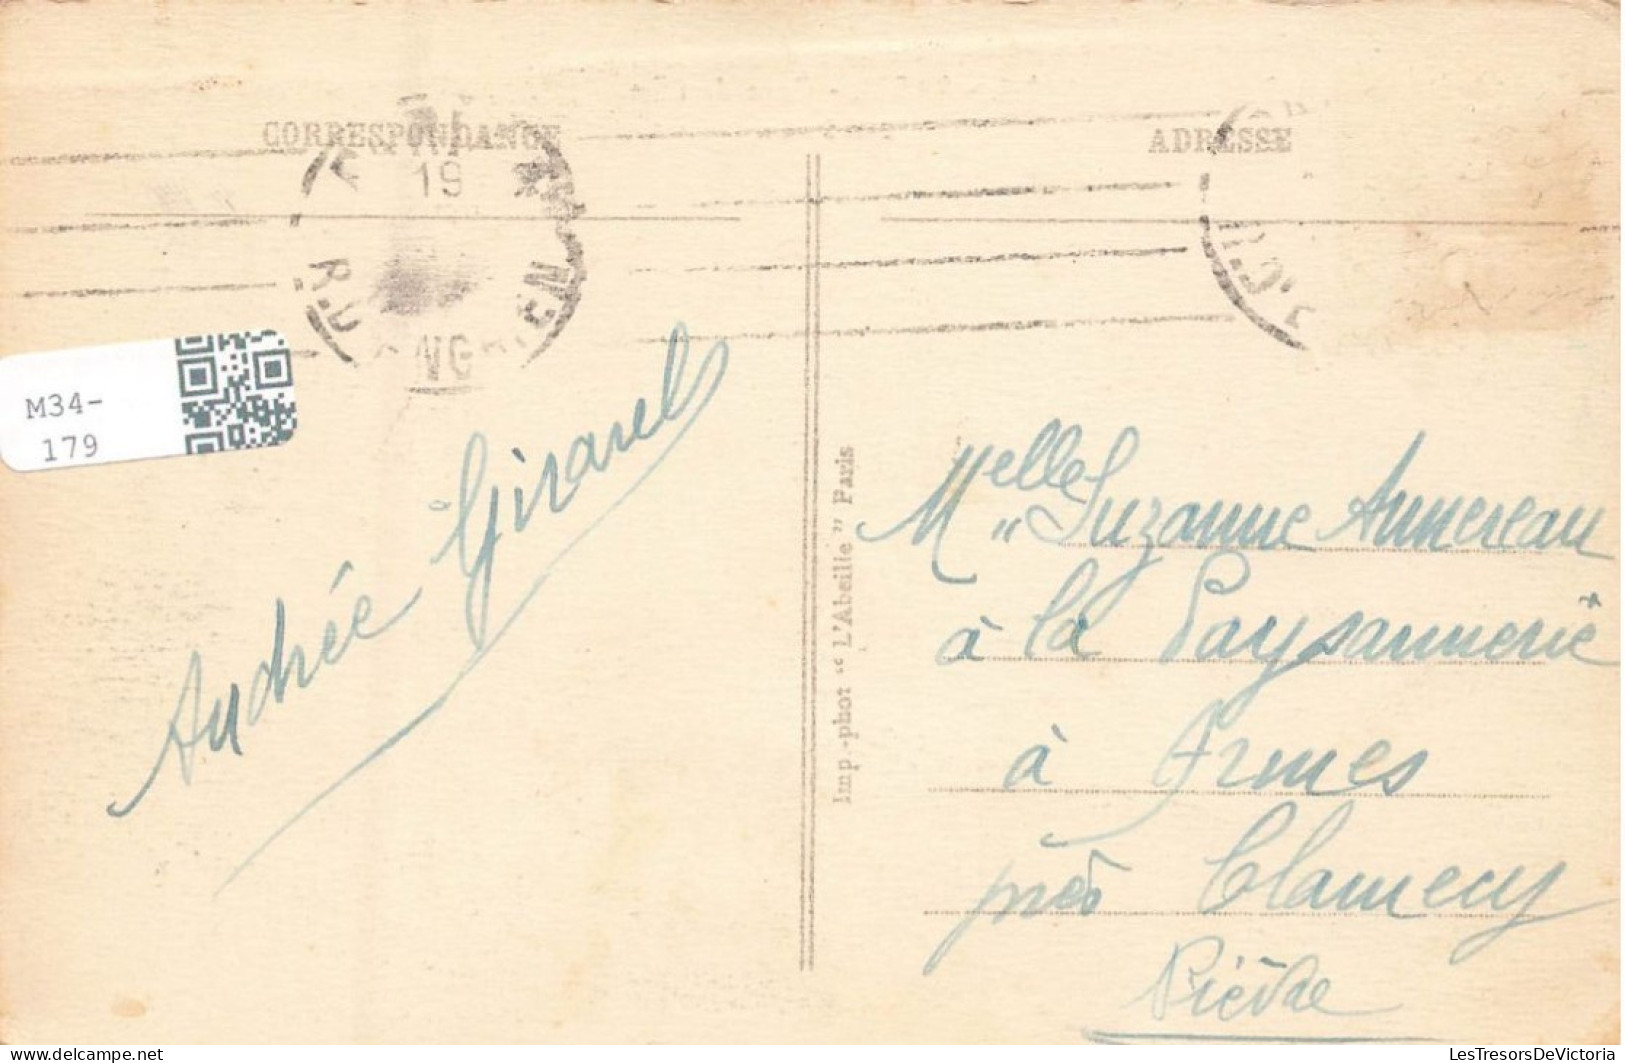 CORRESPONDANCE
ADRESSE
19
M34-
179
Andrée Girard
Imp.-phot “ L'Abeille ” Paris
Melle Suzanne Annereau
à la Paysannerie
à Armes
près Clamecy
Nièvre
LesTresorsDeVictoria
delcampe.net